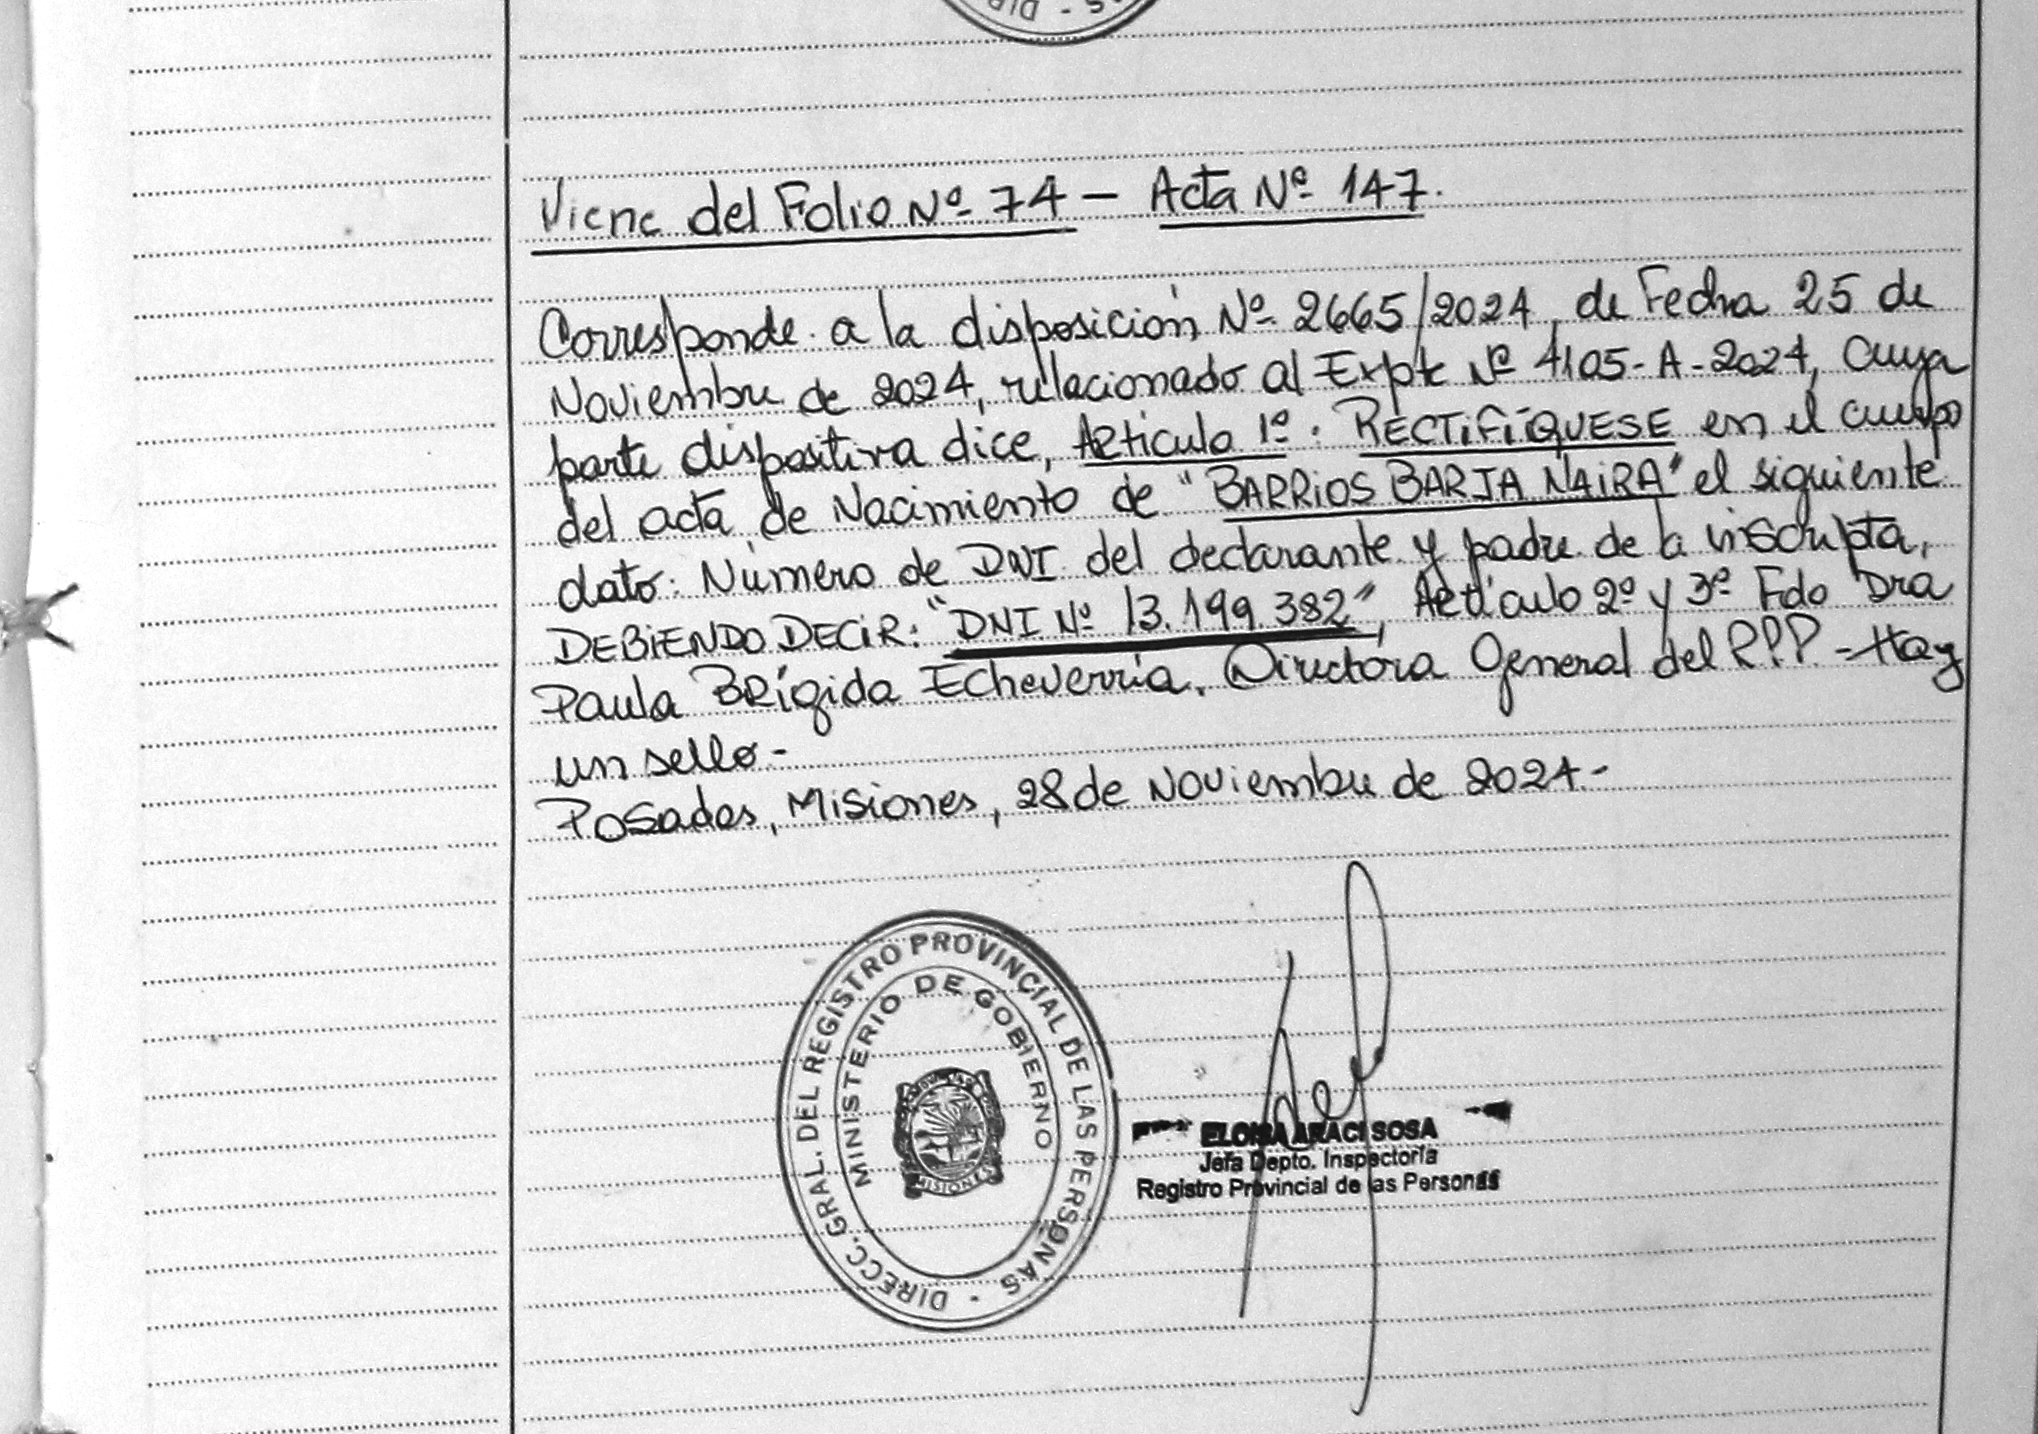 Viene del Folio Nº 74 - Acta Nº 147.
Corresponde a la disposición Nº 2665/2024, de Fecha 25 de
Noviembre de 2024, relacionado al Expte Nº 4105-A-2024, cuya
parte dispositiva dice, Articulo 1º. RECTIFÍQUESE en el cuerpo
del acta de Nacimiento de "BARRIOS BARJA NAIRA" el siguiente
dato: Número de DNI del declarante y padre de la inscripta,
DEBIENDO DECIR: "DNI Nº 13.199.382", Artículo 2º y 3º Fdo Dra
Paula Brígida Echeverría. Directora General del R.P.P. - Hay
un sello -
Posadas, Misiones, 28 de Noviembre de 2024.-
DIRECC. GRAL. DEL REGISTRO PROVINCIAL DE LAS PERSONAS -
MINISTERIO DE GOBIERNO
MISIONES
ELOISA ARACI SOSA
Jefa Depto. Inspectoría
Registro Provincial de las Personas